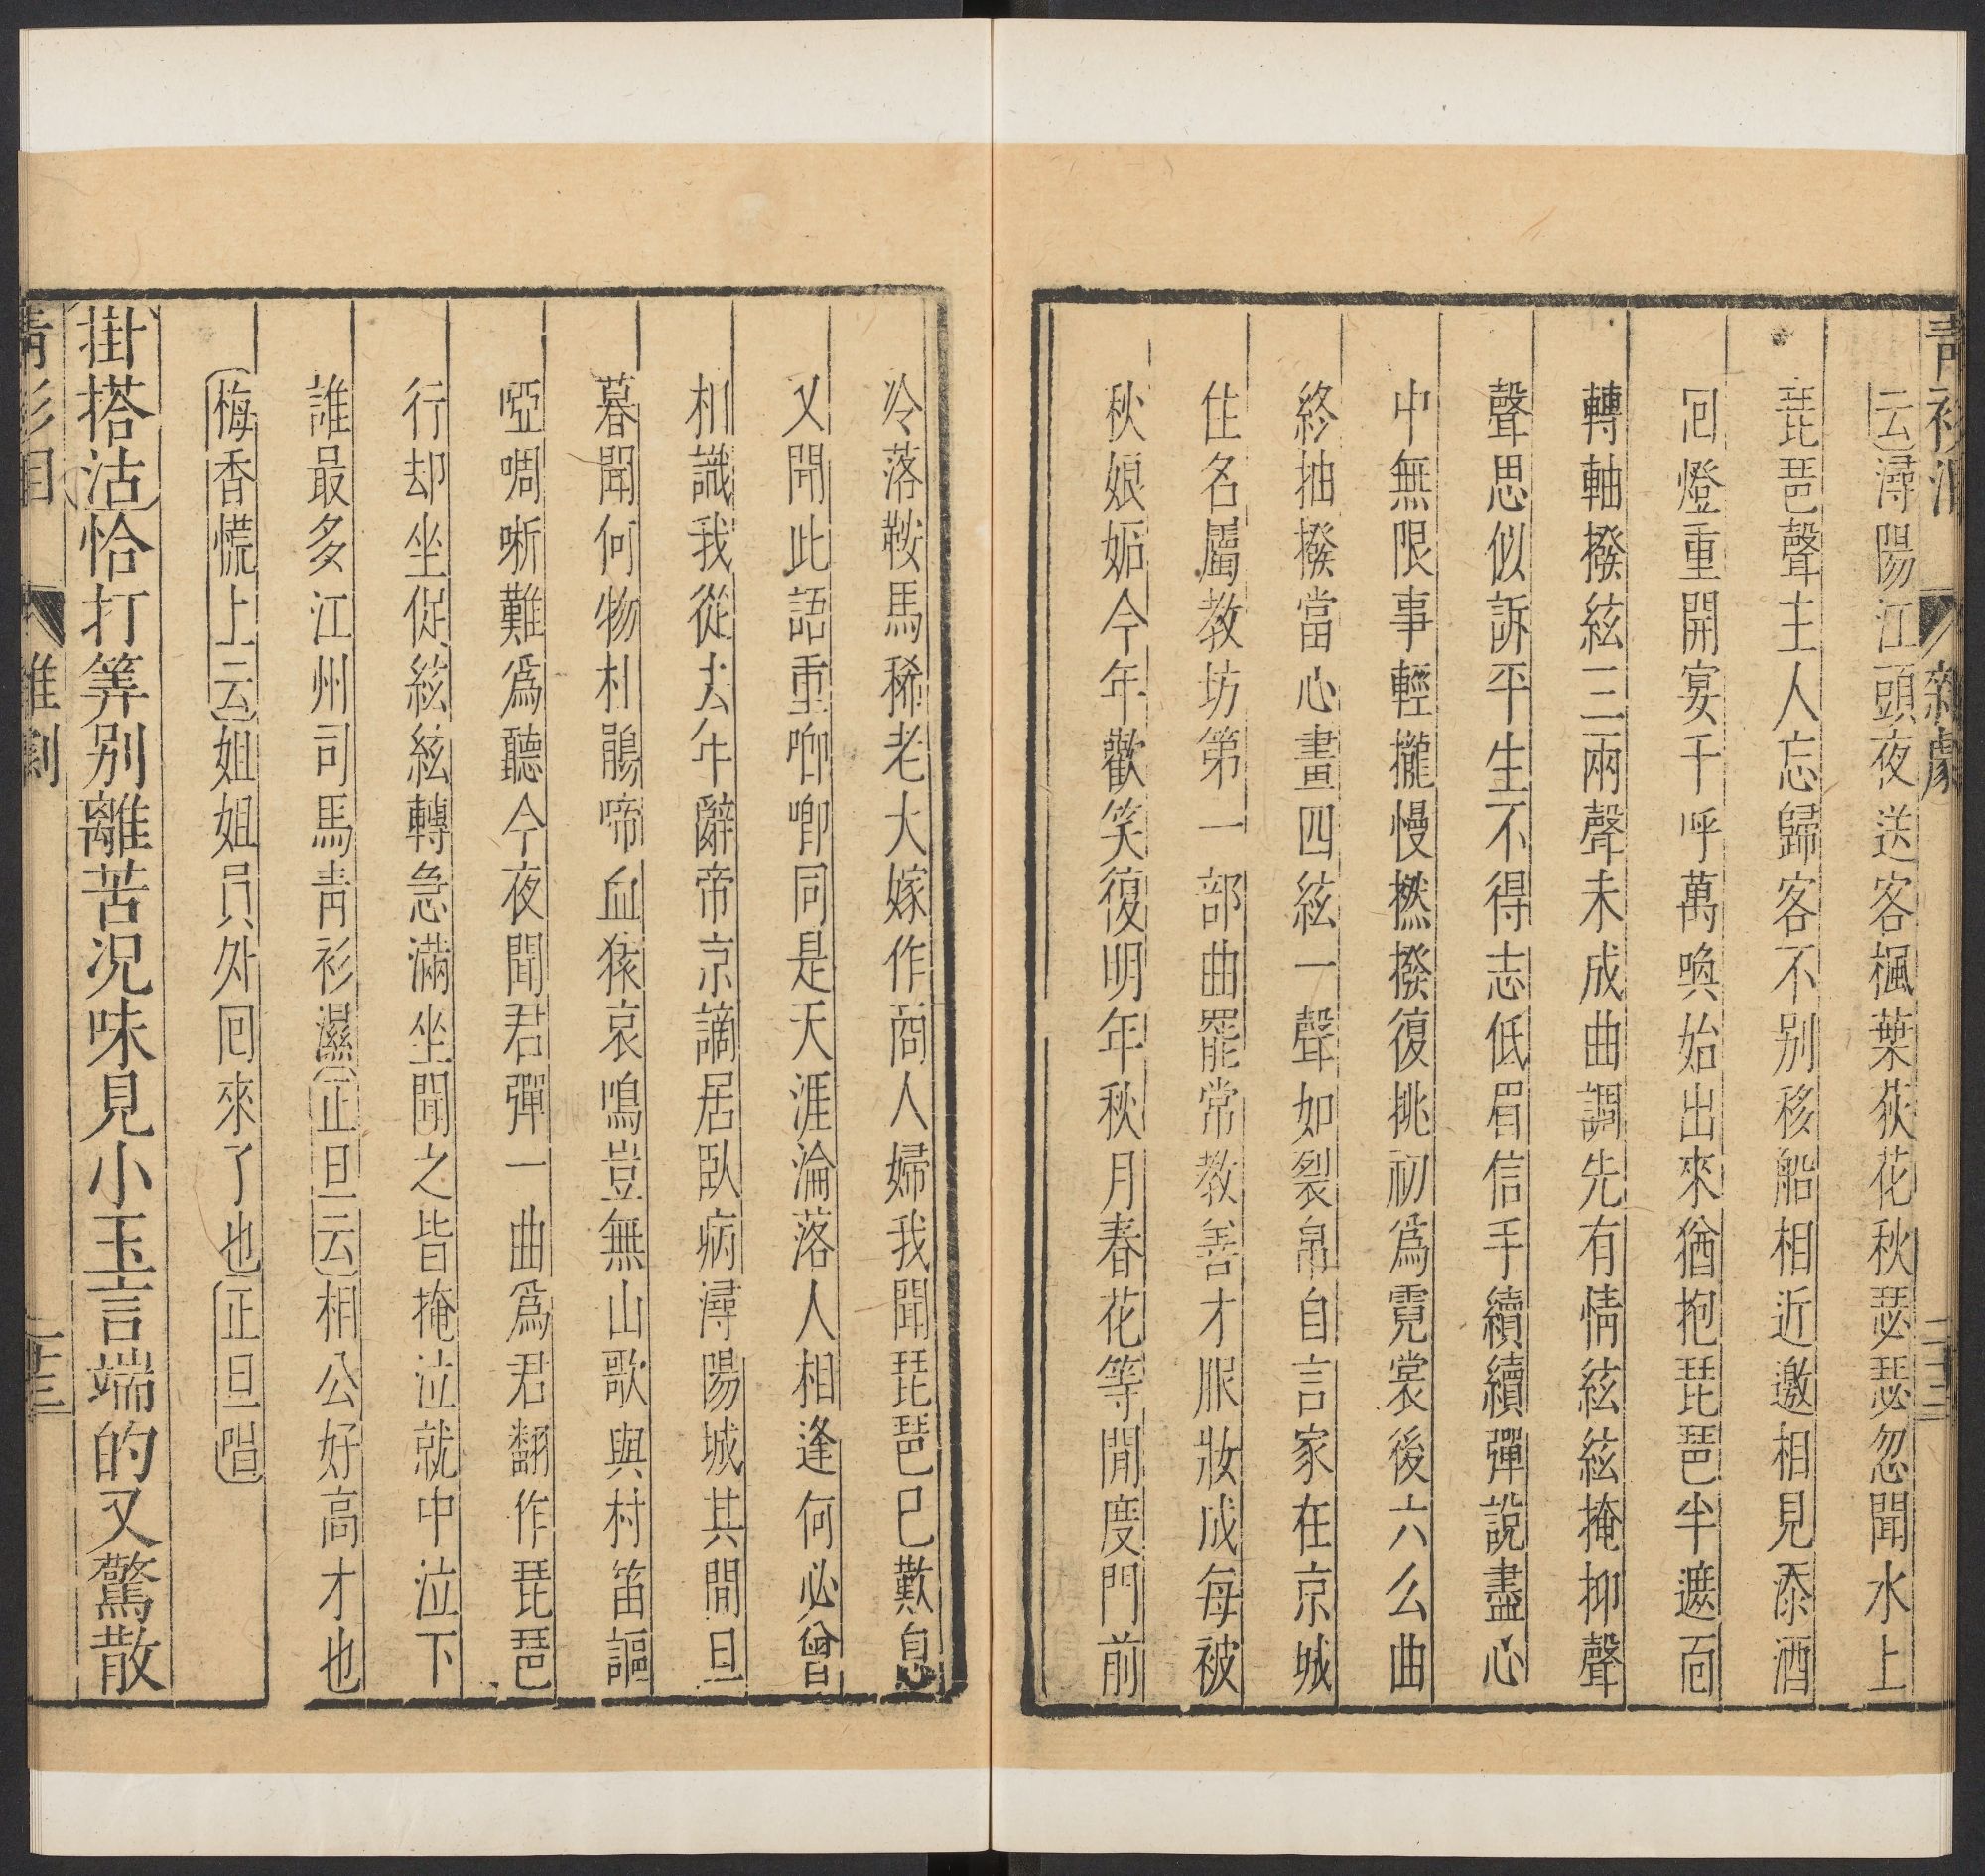 青衫淚 雜劇 二十三
云潯陽江頭夜送客楓葉荻花秋瑟瑟忽聞水上
琵琶聲主人忘歸客不別移船相近邀相見添酒
回燈重開宴千呼萬喚始出來猶抱琵琶半遮面
轉軸撥絃三兩聲未成曲調先有情絃絃掩抑聲
聲思似訴平生不得志低眉信手續續彈說盡心
中無限事輕攏慢撚撥復挑初爲霓裳後六么曲
終抽撥當心畫四絃一聲如裂帛自言家在京城
住名屬教坊第一部曲罷常教善才服妝成每被
秋娘妬今年歡笑復明年秋月春花等閒度門前
冷落鞍馬稀老大嫁作商人婦我聞琵琶已歎息
又聞此語重喞喞同是天涯淪落人相逢何必曾
相識我從去年辭帝京謫居臥病潯陽城其間旦
暮聞何物杜鵑啼血猿哀鳴豈無山歌與村笛謳
啞啁哳難爲聽今夜聞君彈一曲爲君翻作琵琶
行却坐促絃絃轉急滿坐聞之皆掩泣就中泣下
誰最多江州司馬青衫濕正旦云相公好高才也
梅香慌上云姐姐員外回來了也正旦唱
掛搭沽恰打筭別離苦況味見小玉言端的又驚散
青衫淚 雜劇 二十三